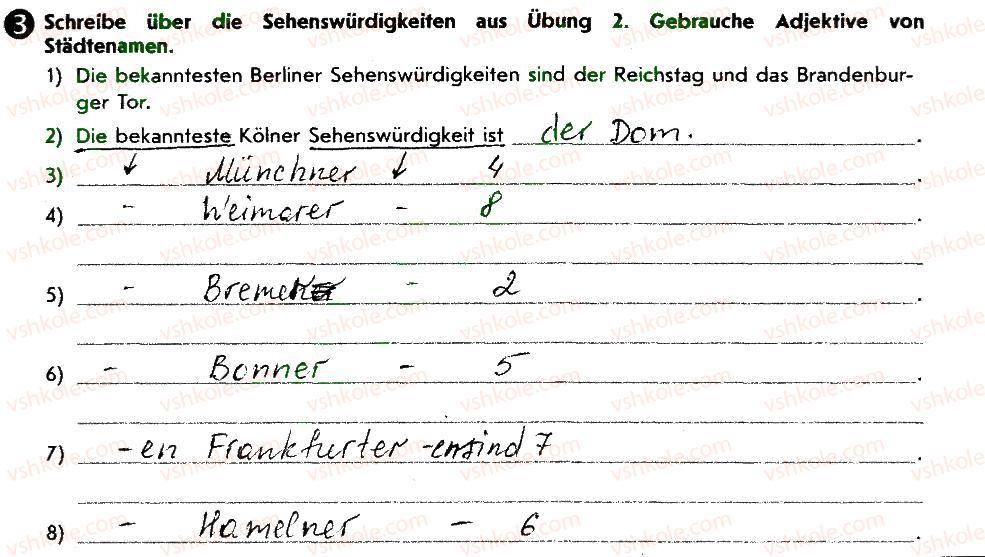 3 Schreibe über die Sehenswürdigkeiten aus Übung 2. Gebrauche Adjektive von
Städtenamen.
1) Die bekanntesten Berliner Sehenswürdigkeiten sind der Reichstag und das Brandenbur-
ger Tor.
2) Die bekannteste Kölner Sehenswürdigkeit ist der Dom.
3) ↓ Münchner ↓ 4.
4) - Weimarer - 8.
5) - Bremer - 2.
6) - Bonner - 5.
7) -en Frankfurter -en sind 7.
8) - Hamelner - 6.